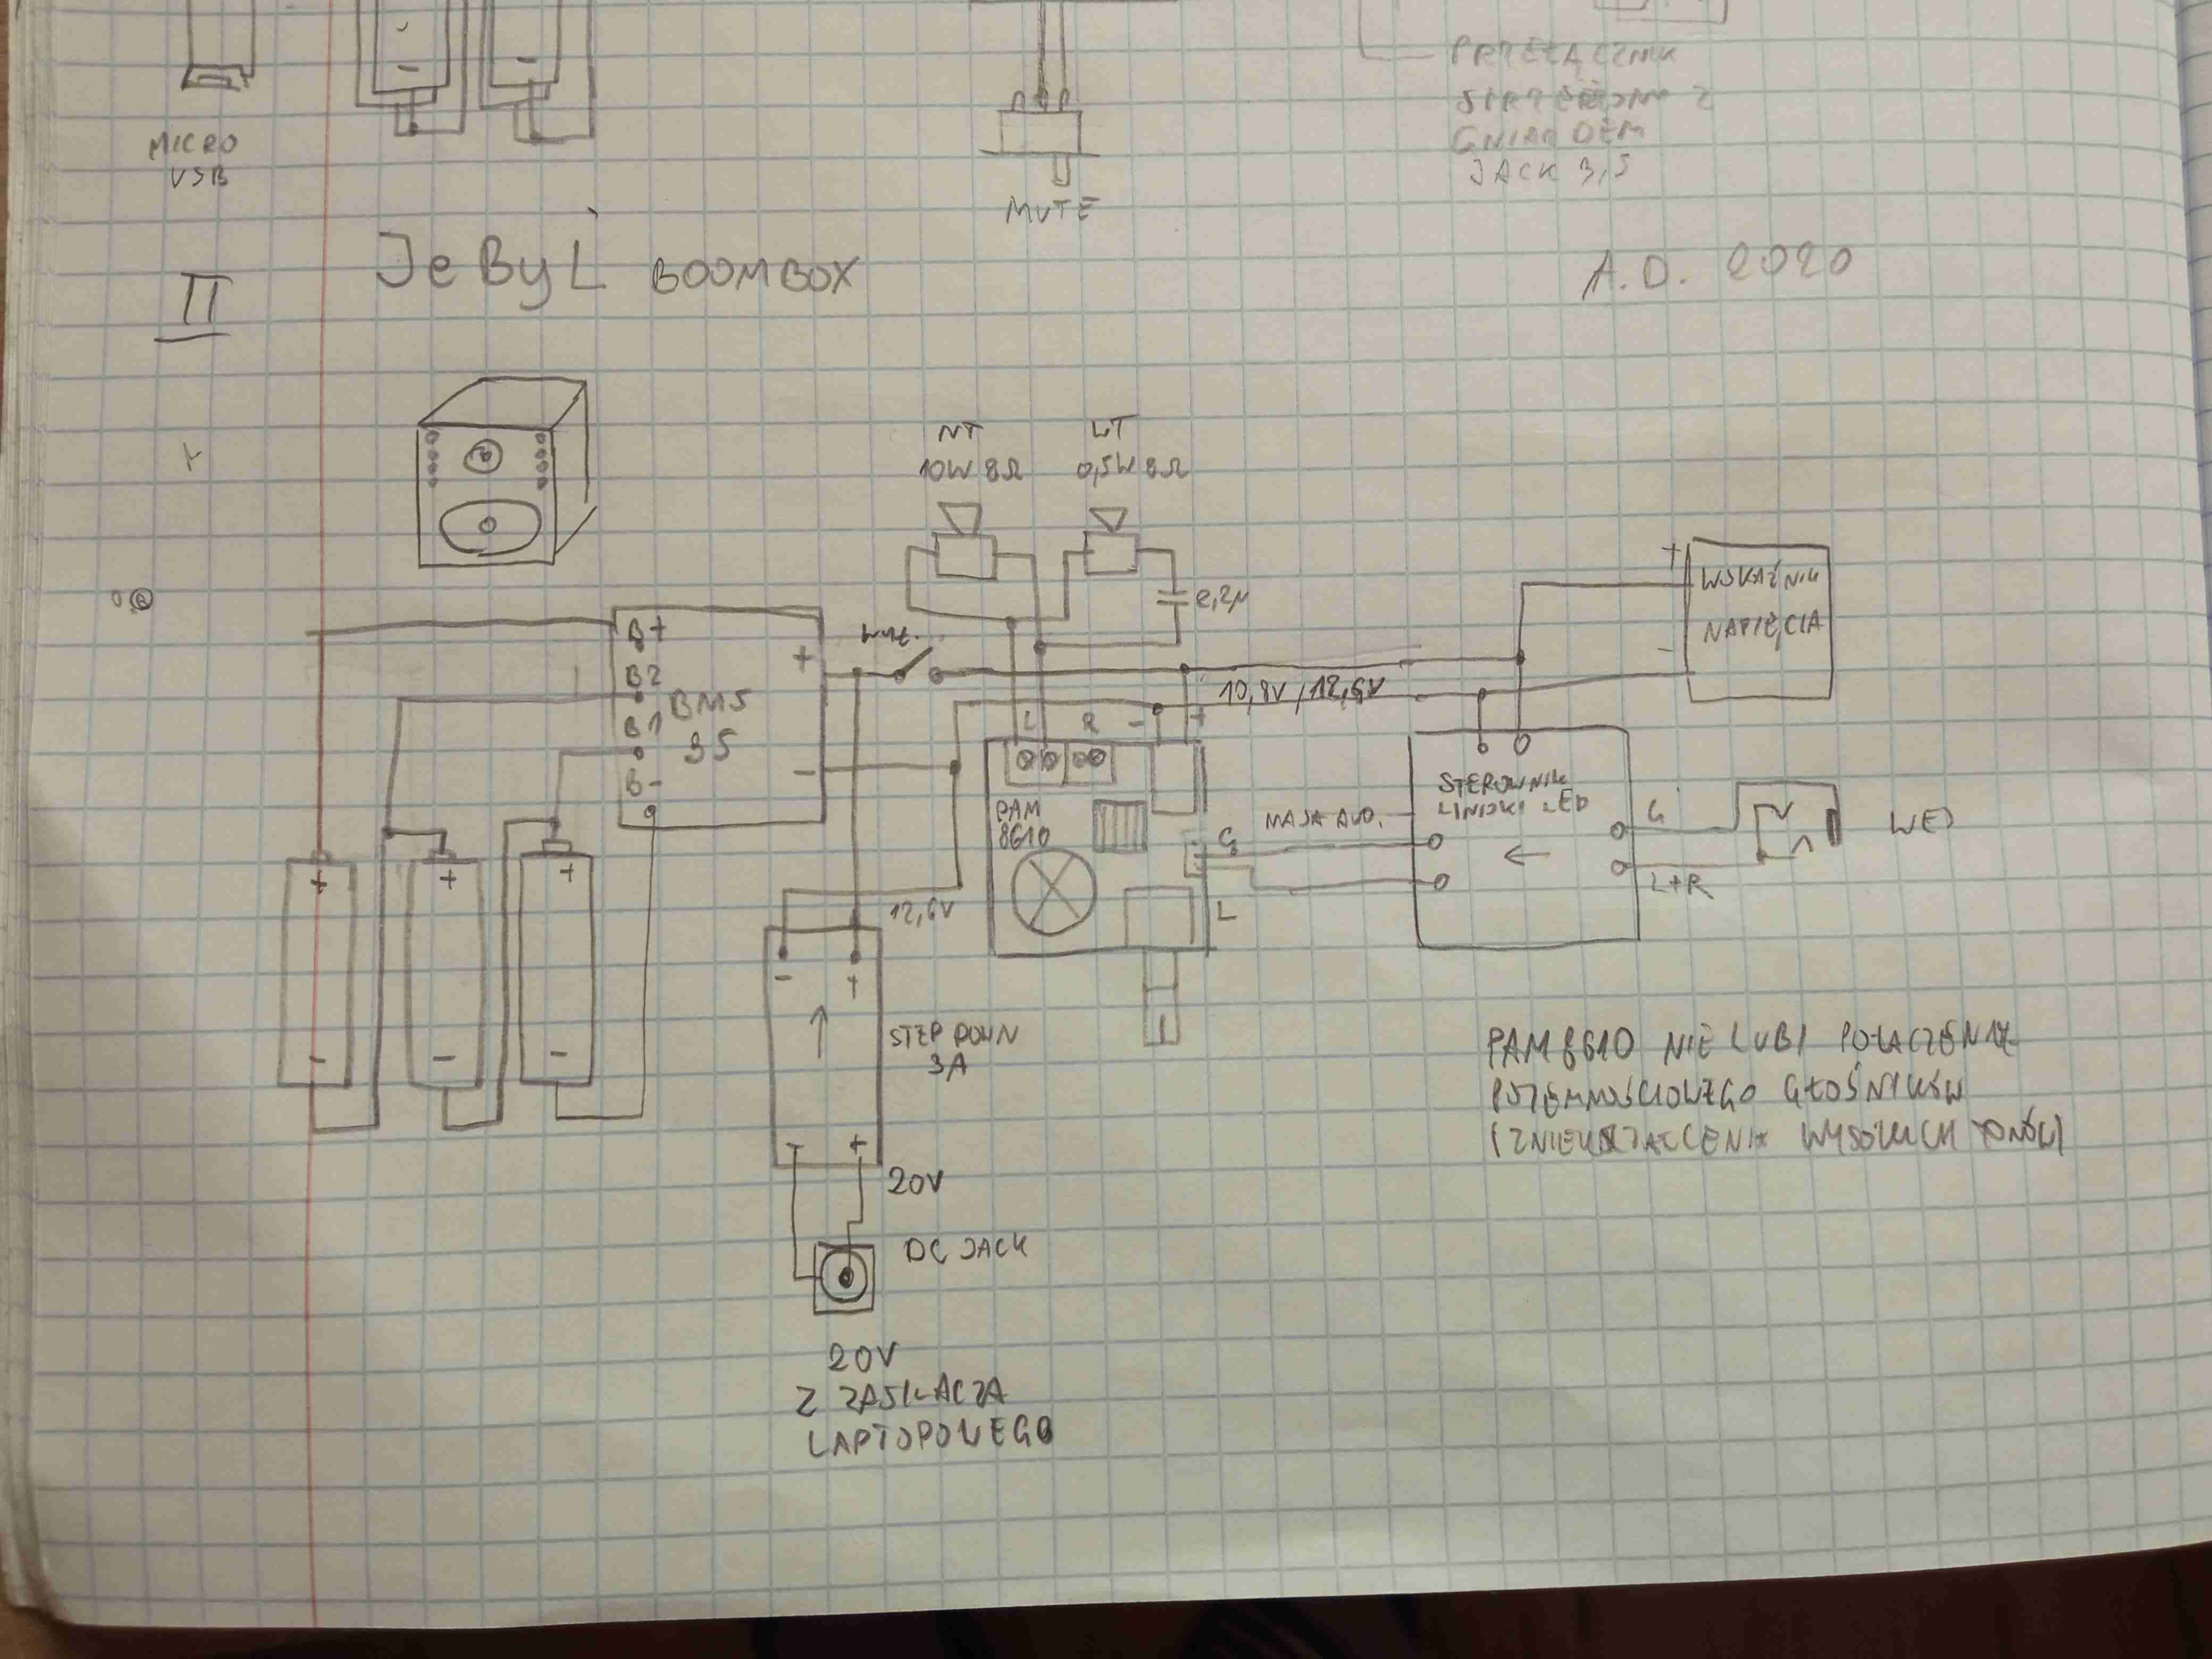 MICRO
USB
MUTE
GNIAZDEM
JACK 3,5
II
JeByL BOOMBOX
A.D. 2020
NT
10W 8Ω
WT
0,5W 8Ω
2,2µ
B+
B2
B1
B-
BMS
3S
+
-
10,8V / 12,6V
+
-
WSKAŹNIK
NAPIĘCIA
L R - +
PAM
8610
G
L
MASA AUD.
STEROWNIK
LINIJKI LED
G
L+R
+ -
+ -
+ -
12,6V
- +
STEP DOWN
3A
- +
20V
DC JACK
20V
Z ZASILACZA
LAPTOPOWEGO
PAM8610 NIE LUBI POŁĄCZENIA
POJEMNOŚCIOWEGO GŁOŚNIKÓW
(ZNIEKSZTAŁCENIA WYSOKICH TONÓW)